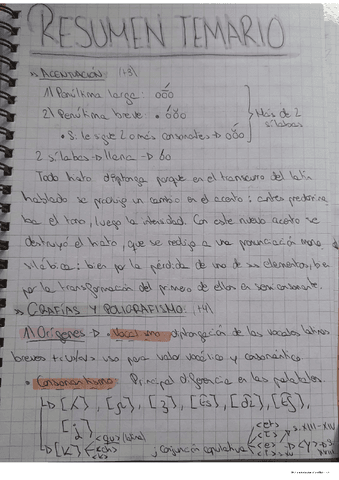 RESUMEN TEMARIO
» ACENTUACIÓN: (+3)
1) Penúltima larga: oóo
2) Penúltima breve: • óoo
Más de 2
sílabas
• Si le sigue 2 o más consonantes → oóo
2 sílabas → llana → óo
Todo hiato diptonga porque en el transcurso del latín
hablado se produjo un cambio en el acento: antes predomina
ba el tono, luego la intensidad. Con este nuevo acento se
destruyó el hiato, que se redujo a una pronunciación mono
silábica: bien por la pérdida de uno de sus elementos, bien
por la transformación del primero de ellos en semiconsonante.
» GRAFÍAS Y POLIGRAFISMO: (+4)
1) Orígenes → Vocalismo: diptongación de las vocales latinas
breves + uso para valor vocálico y consonántico.
• Consonantismo: Principal diferencia en las palatales.
[ʎ], [ɲ], [ʒ], [t͡s], [d͡z], [t͡ʃ],
[j]
[k] <qu>
<ch>
<k>
, conjunción copulativa
<et>
<e>
S. XIII-XIV